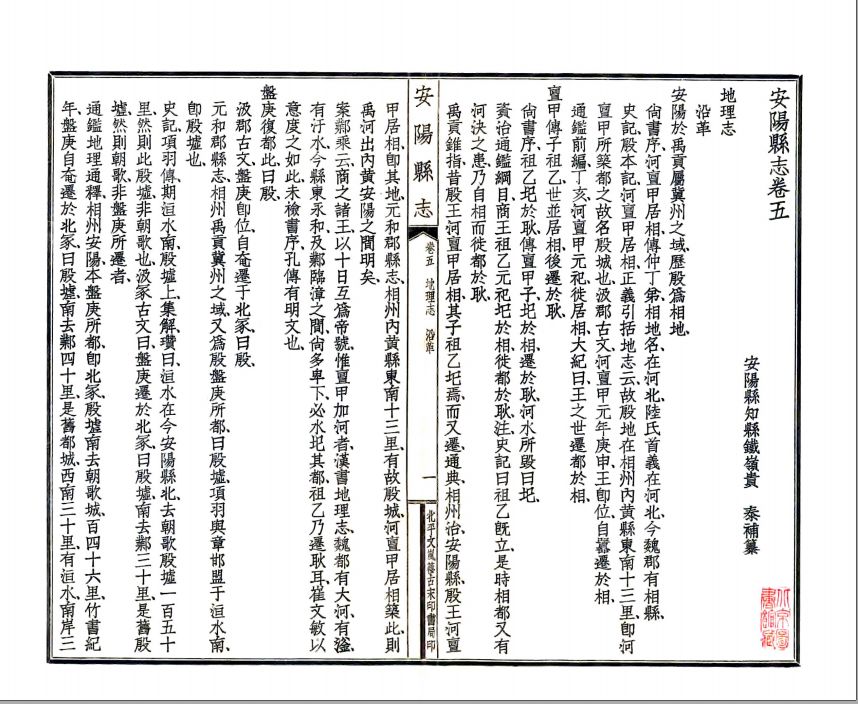 安陽縣志卷五
安陽縣知縣鐵嶺貴　泰補纂
地理志
沿革
安陽於禹貢屬冀州之域歷殷爲相地
尙書序河亶甲居相傳仲丁弟相地名在河北陸氏首義在河北今魏郡有相縣
史記殷本記河亶甲居相正義引括地志云故殷城在相州內黃縣東南十三里卽河
亶甲所築都之故名殷城也汲郡古文河亶甲元年庚申王卽位自囂遷於相
通鑑前編丁亥河亶甲元祀徙居相大紀曰王之世遷都於相
亶甲傳子祖乙世並居相後遷於耿
尙書序祖乙圮於耿傳亶甲子圮於相遷於耿河水所毀曰圮
資治通鑑綱目商王祖乙元祀圮於相徙都於耿注史記曰祖乙旣立是時相都又有
河決之患乃自相而徙都於耿
禹貢錐指昔殷王河亶甲居相其子祖乙圮焉而又遷通典相州治安陽縣殷王河亶
甲居相卽其地元和郡縣志相州內黃縣東南十三里有故殷城河亶甲居相築此則
禹河出內黃安陽之間明矣
案鄴乘云商之諸王以十日互爲帝號惟亶甲加河者漢書地理志魏郡有大河有滏
有汙水今縣東永和及鄴臨漳之間尙多卑下必水圮其都祖乙乃遷耿耳崔文敏以
意度之如此未檢書序孔傳有明文也
盤庚復都此曰殷
汲郡古文盤庚卽位自奄遷于北冢曰殷
元和郡縣志相州禹貢冀州之域又爲殷盤庚所都曰殷墟項羽與章邯盟于洹水南
卽殷墟也
史記項羽傳期洹水南殷墟上集解瓚曰洹水在今安陽縣北去朝歌殷墟一百五十
里然則此殷墟非朝歌也汲冢古文曰盤庚遷於北冢曰殷墟南去鄴三十里是舊殷
墟然則朝歌非盤庚所遷者
通鑑地理通釋相州安陽本盤庚所都卽北冢殷墟南去朝歌城百四十六里竹書紀
年盤庚自奄遷於北冢曰殷墟南去鄴四十里是舊都城西南三十里有洹水南岸三
安陽縣志
卷五　地理志　沿革
一
北平文嵐簃古宋印書局印